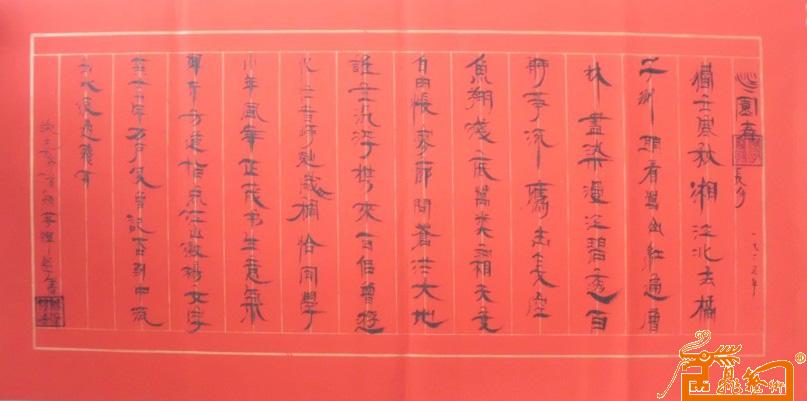 沁園春 長沙 一九二五年
獨立寒秋湘江北去橘
子洲頭看萬山紅遍層
林盡染漫江碧透百
舸爭流鷹击長空
魚翔淺底萬类霜天竞
自由悵寥廓問蒼茫大地
誰主沉浮携來百侣曾遊
忆往昔崢嶸歲稠恰同學
少年風華正茂书生意氣
揮斥方遒指点江山激扬文字
糞土當年万户侯曾記否到中流
击水浪遏飛舟